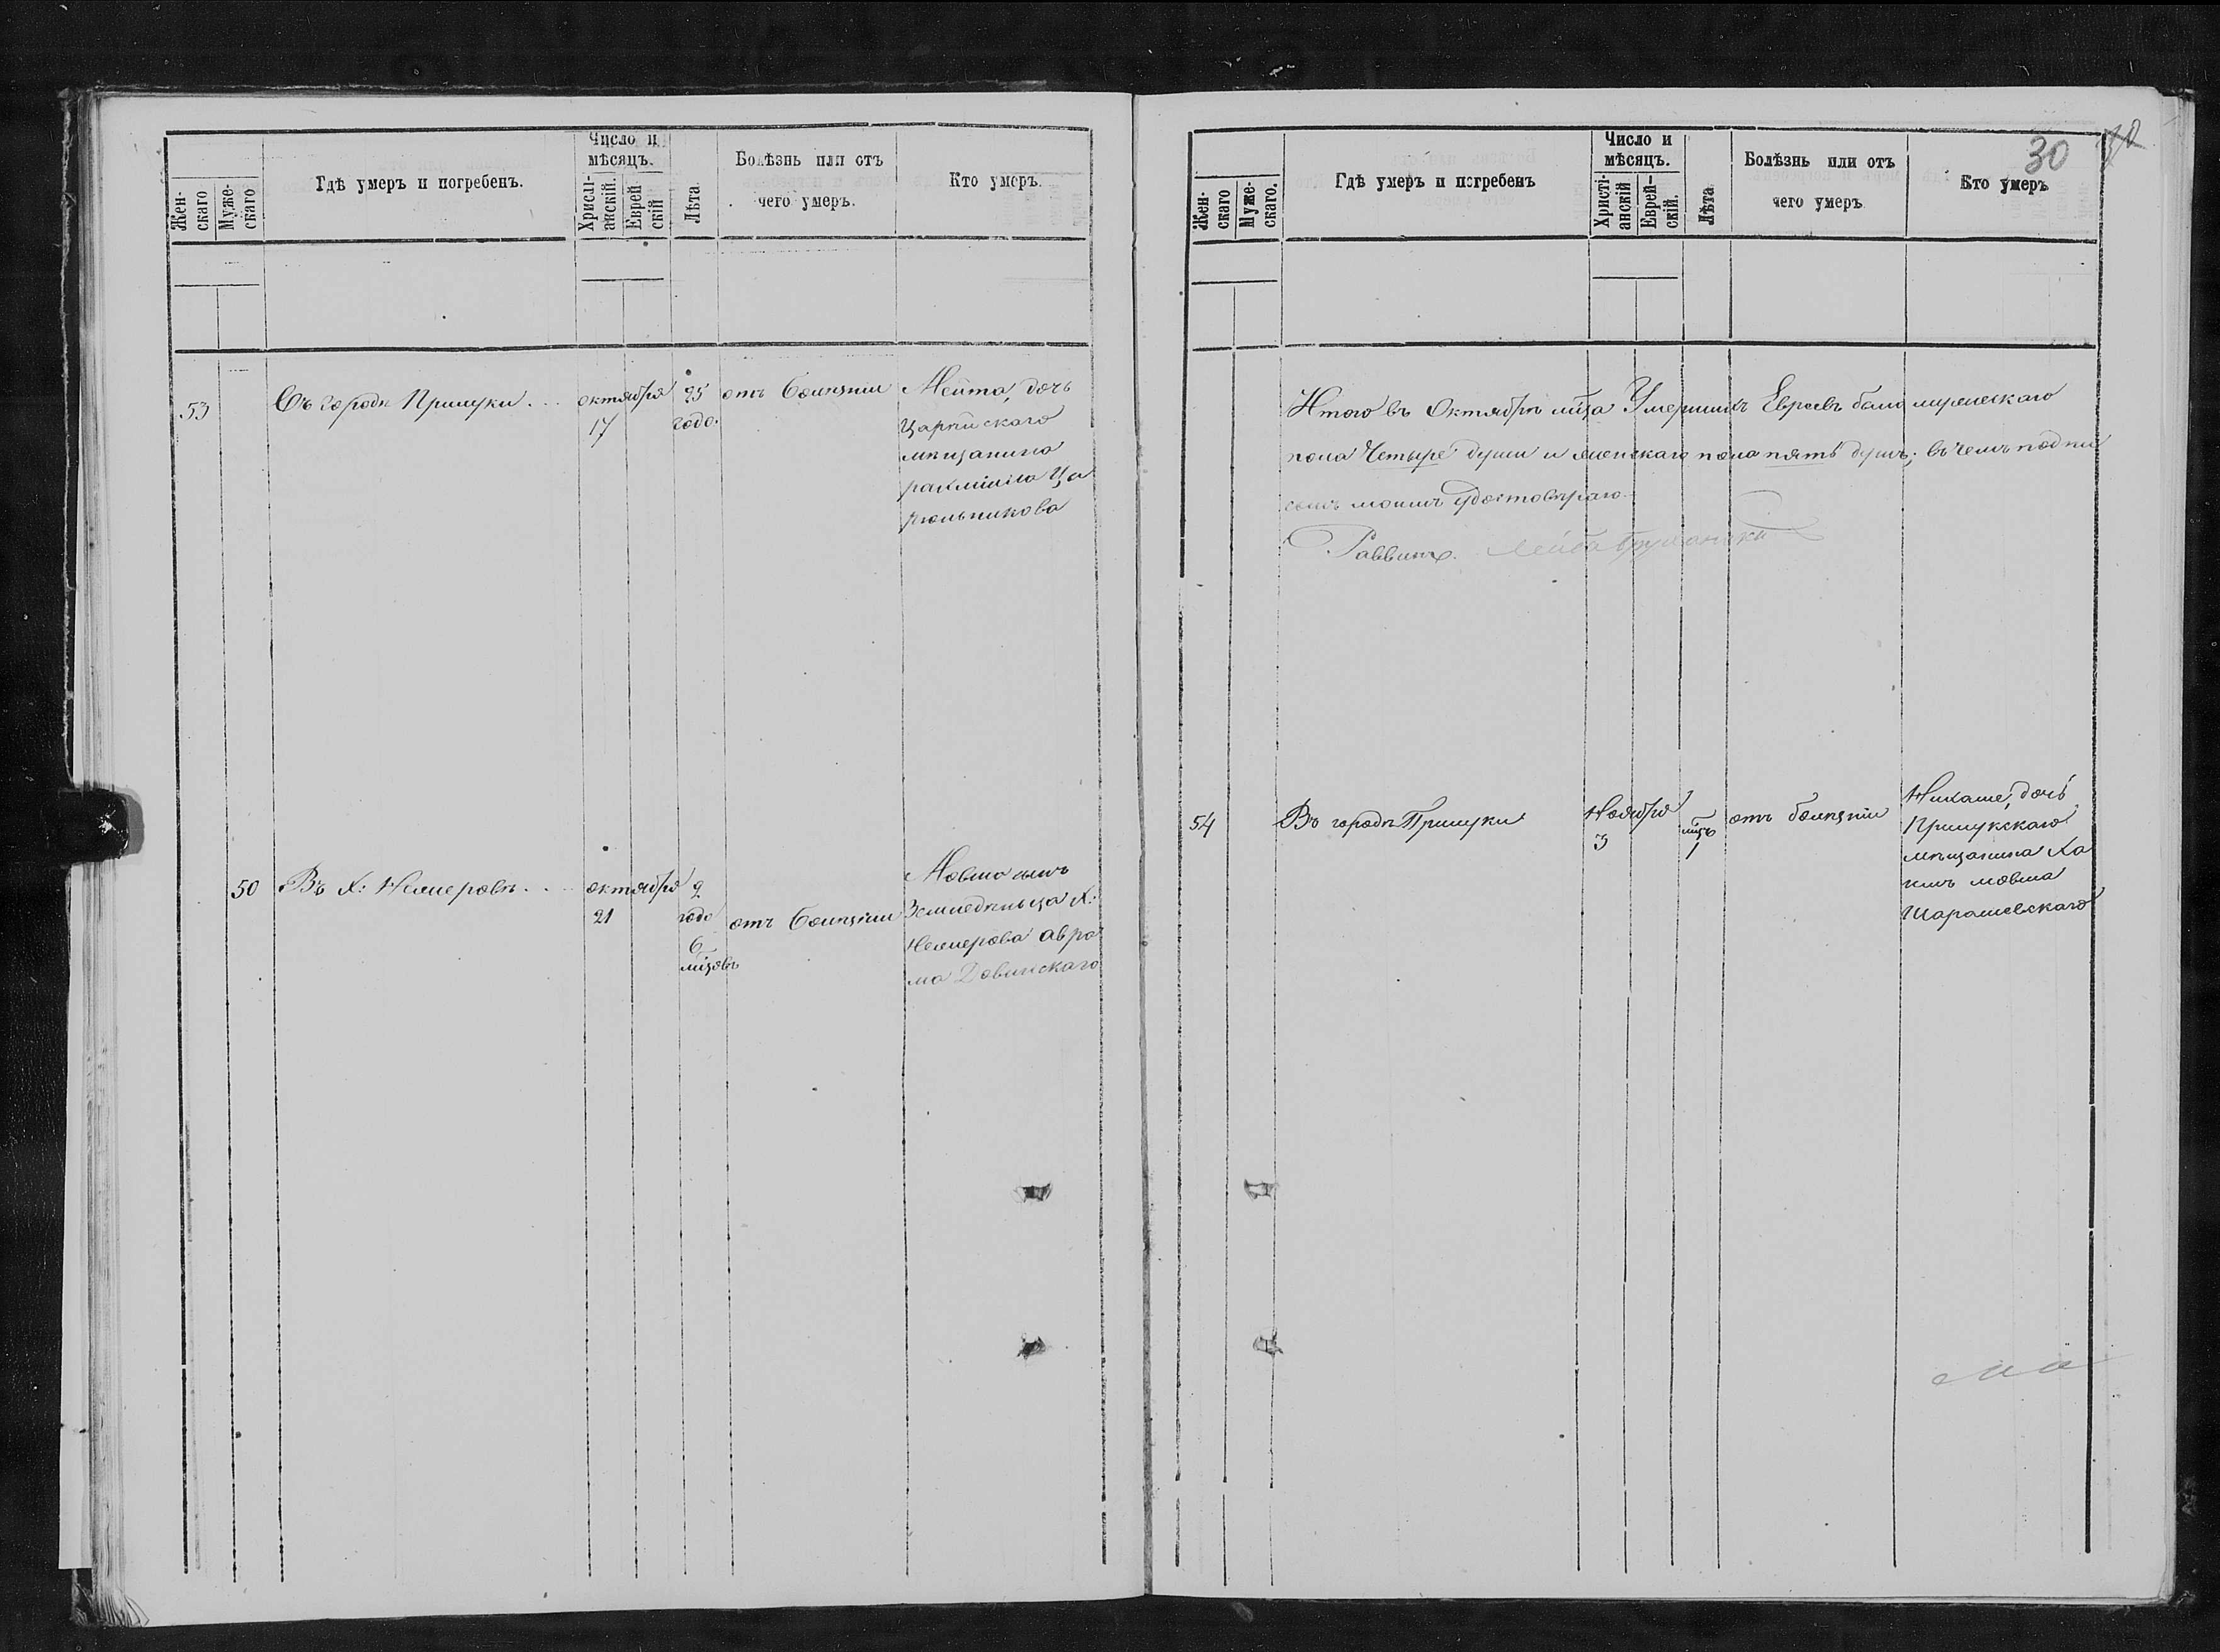 Жен-
скаго
Муже-
скаго
Гдѣ умеръ и погребенъ.
Число и
мѣсяцъ.
Христі-
анскій.
Еврей
скій
Лѣта
Болѣзнь или отъ
чего умеръ.
Кто умеръ.
53
Въ городѣ Прилуки...
октября
17
25
годо.
отъ болѣзни
Мейта, дочь
мѣщанина
50
Въ Х: Немеровѣ...
октября
21
2
годо
6
міцовъ
отъ болѣзни
Мовша сынъ
Земледѣльца Х:
Немерова Авра
ма Довинскаго
30
Жен-
скаго
Муже-
скаго.
Гдѣ умеръ и погребенъ
Число и
мѣсяцъ.
Христі-
анскій
Еврей-
скій.
Лѣта
Болѣзнь или отъ
чего умеръ
Кто умеръ
Итого въ Октябрѣ міца Умершихъ Евреевъ было мужескаго
пола Четыре души и женскаго пола пять душъ; въ чемъ подпи
сомъ моимъ удостовѣраю.
Раввинъ. Лейба
54
Въ городѣ Прилуки
Ноября
3
міцъ
1
отъ болѣзни
дочь
Прилукскаго
мѣщанина Ха
имъ мовша
Шарашевскаго